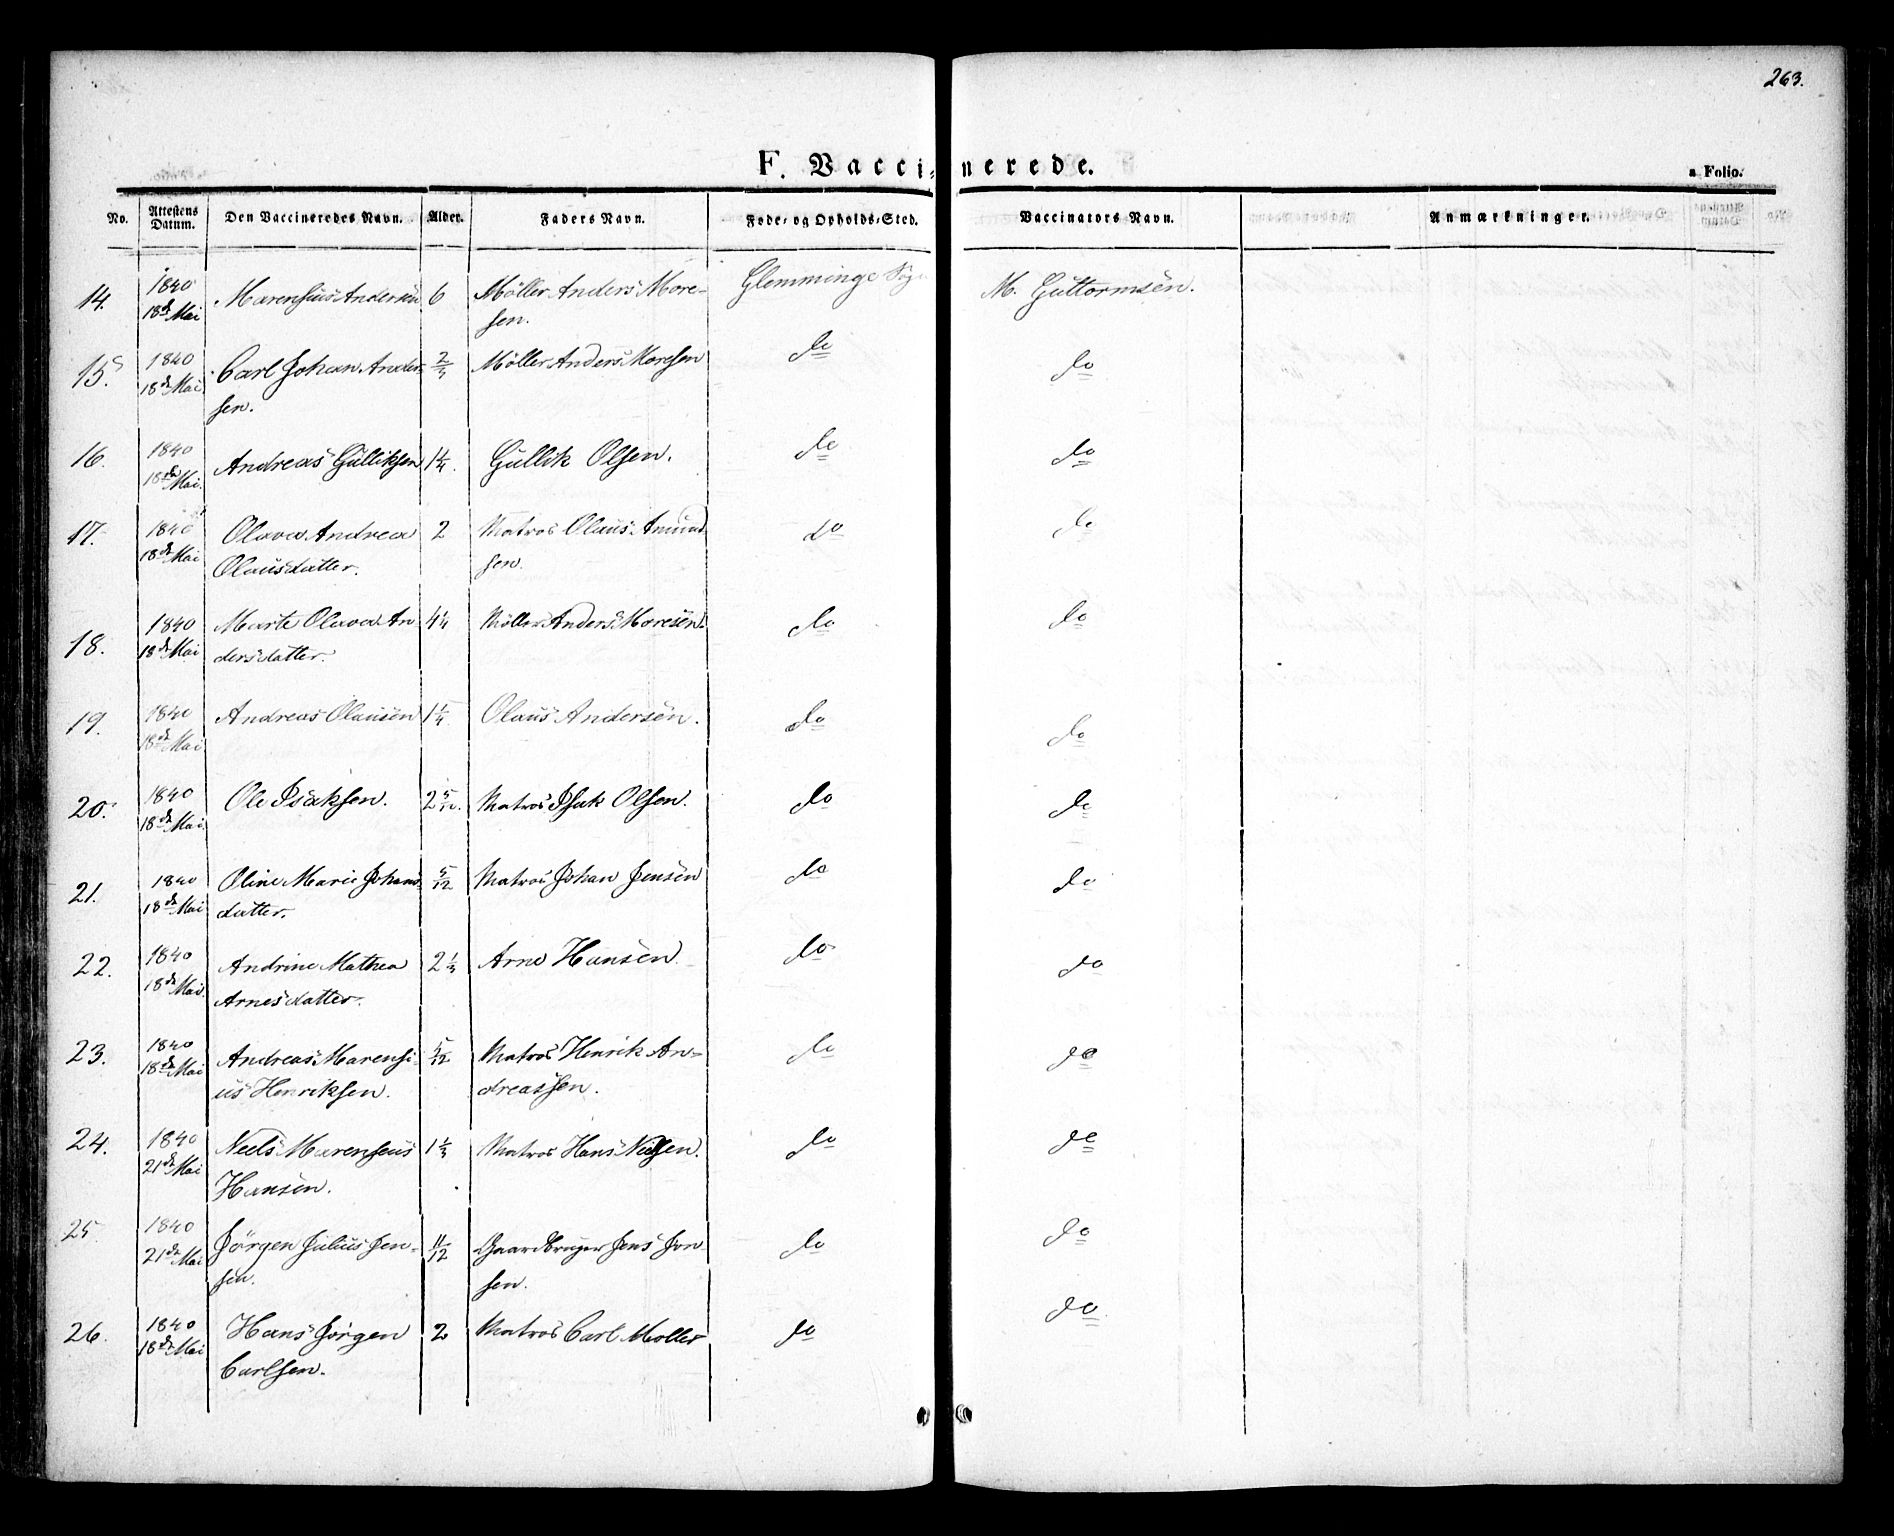 263.
F. Vaccinerede.
a Folio.
No. Attestens Datum. Den Vaccineredes Navn. Alder. Faders Navn. Føde- og Opholds-Sted. Vaccinators Navn. Anmærkninger.
14. 1840 Marensius Andersen 6 Möller Anders More- Glemminge Sogn M. Guttormsen.
18de Mai sen.
15. 1840 Carl Johan Ander- Möller Anders Moresen do do
18de Mai sen.
16. 1840 Andreas Gulliksen 1 1/4. Gullik Olsen. do do
18de Mai.
17. 1840 Olava Andrea 2 Matros Olaus Amund- do do
18de Mai Olausdatter. sen.
18. 1840 Marte Olava An 4 1/4 Möller Anders Moresen. do do
18de Mai dersdatter.
19. 1840 Andreas Olausen 1 1/4. Olaus Andersen. do do
18de Mai
20. 1840 Ole Isaksen. 2 5/12. Matros Isak Olsen. do do
18de Mai.
21. 1840 Oline Marie Johans 5/12 Matros Johan Jensen do do
18de Mai datter.
22. 1840 Andrine Mathea 2 1/3 Arne Hansen. do do
18de Mai. Arnesdatter.
23. 1840 Andreas Marensi- 5/12 Matros Henrik An- do do
18de Mai us Henriksen. dreassen.
24. 1840 Neels Marensius 1 1/3 Matros Hans Nielsen. do do
21de Mai Hansen.
25. 1840 Jörgen Julius Jen- 11/12 Gaardbruger Jens Jon- do do
21de Mai sen. sen.
26. 1840 Hans Jörgen 2 Matros Carl Moller do do
18de Mai Carlsen.